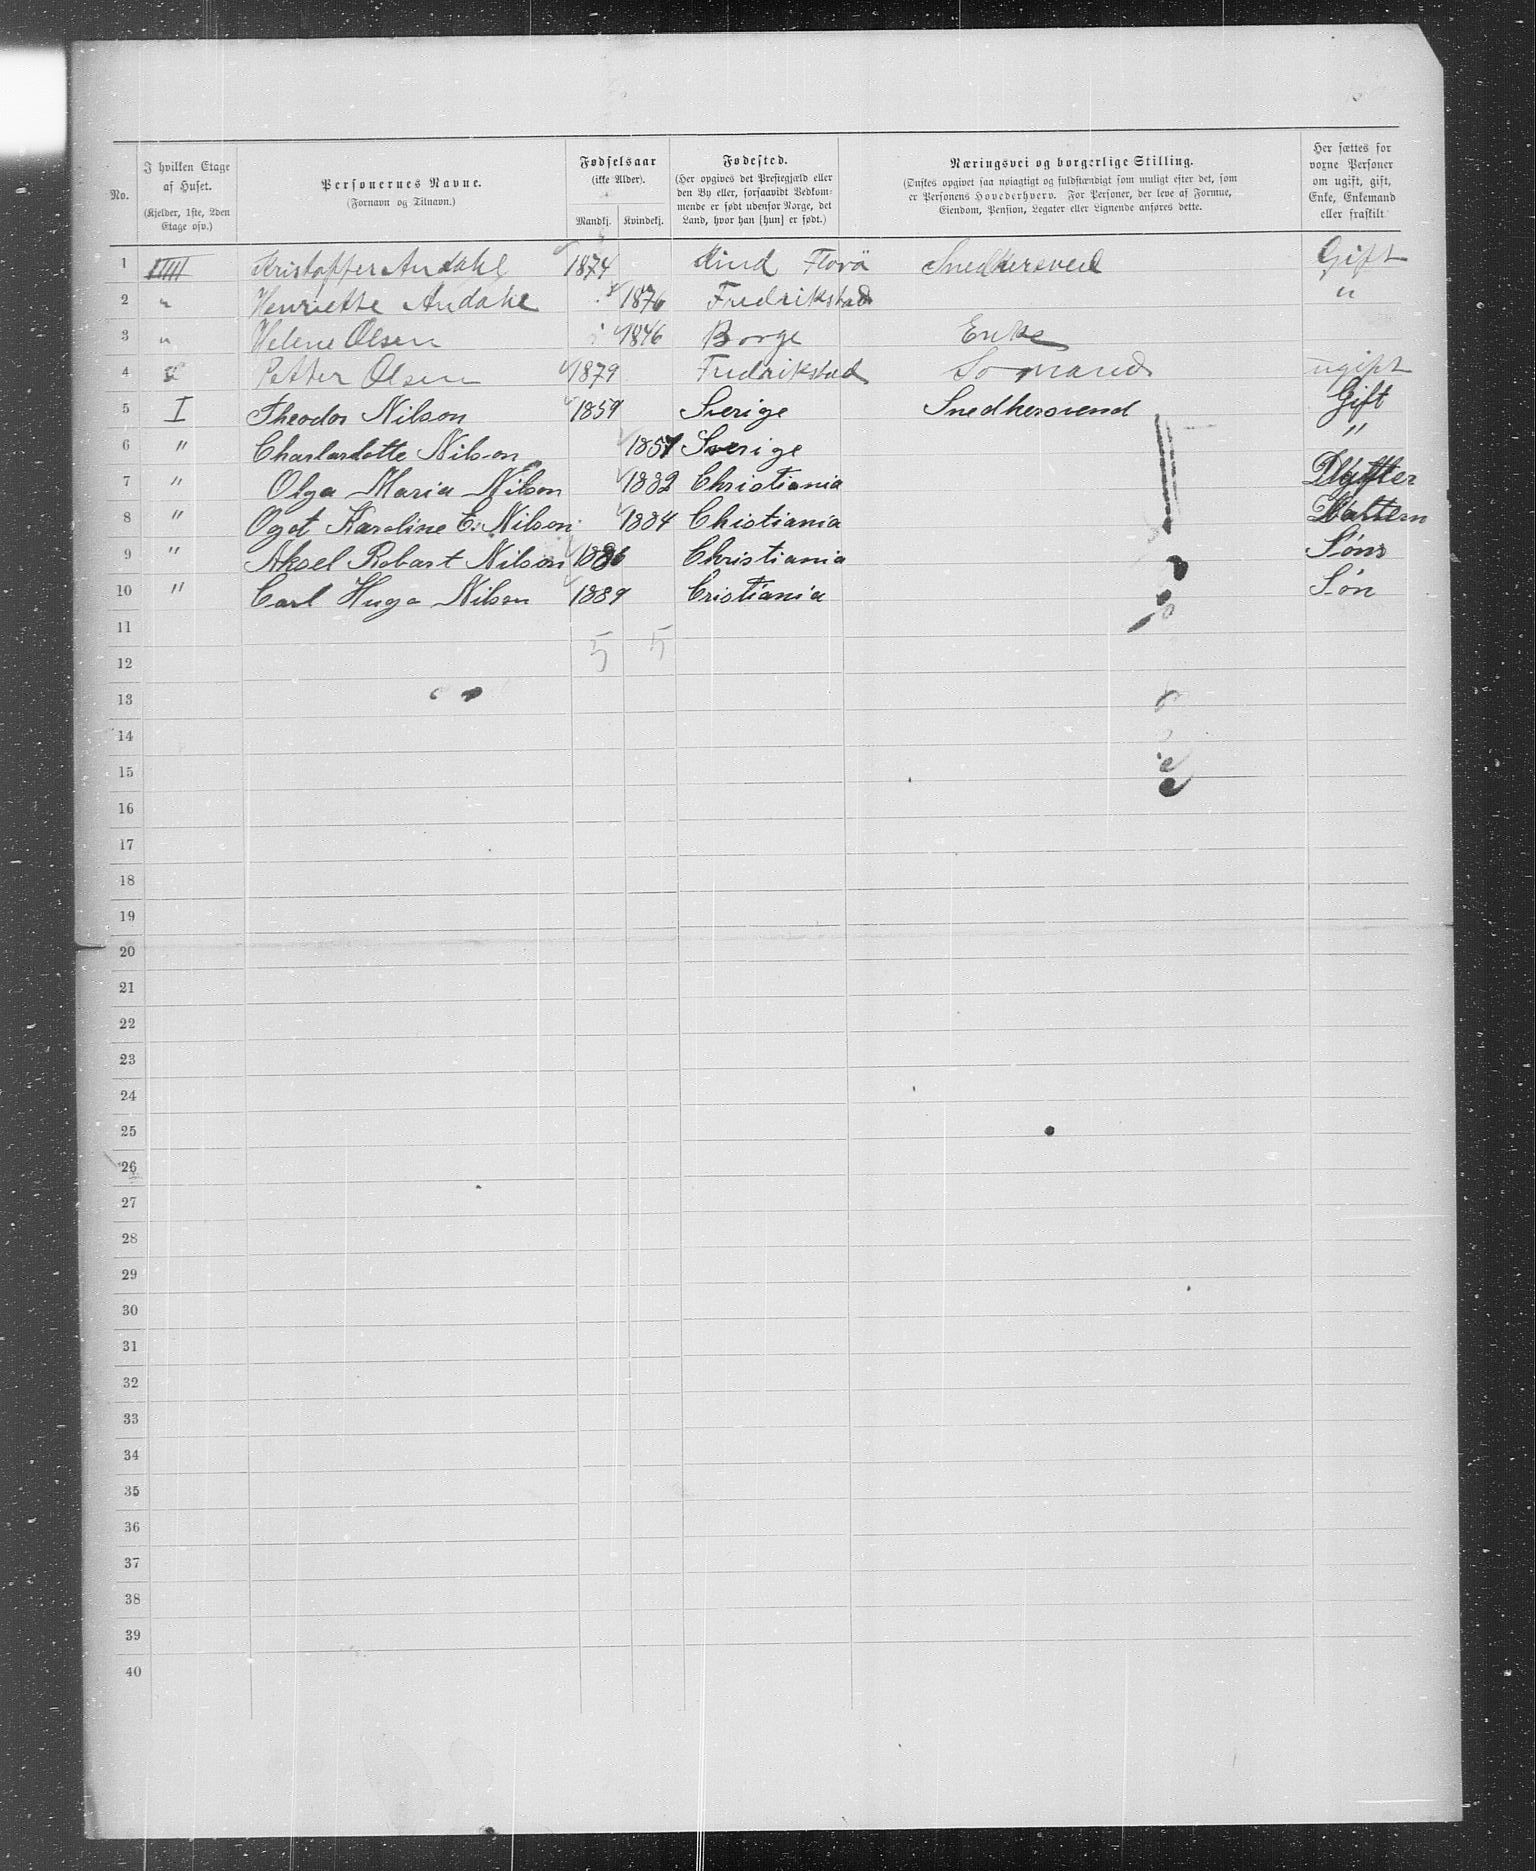 No.
I hvilken Etage af Huset.
(Kjelder, 1ste, 2den Etage osv.)
Personernes Navne.
(Fornavn og Tilnavn.)
Fødselsaar
(ikke Alder).
Mandkj. Kvindekj.
Fødested.
(Her opgives det Prestegjæld eller den By eller, forsaavidt Vedkommende er født udenfor Norge, det Land, hvor han [hun] er født.)
Næringsvei og borgerlige Stilling.
(Ønskes opgivet saa nøiagtigt og fuldstændigt som muligt efter det, som er Personens Hovederhverv. For Personer, der leve af Formue, Eiendom, Pension, Legater eller Lignende anføres dette.
Her sættes for voxne Personer om ugift, gift, Enke, Enkemand eller fraskilt
1 Kristoffer Andahl 1874 Kind Florö Snedkersved Gift
2 " Henriette Andahl 1876 Fredrikstad "
3 " Helene Olsen 1846 Borge Enke
4 Petter Olsen 1879 Fredrikstad Sømand ugift
5 I Theodor Nilson 1859 Sverige Snedkersvend Gift
6 " Charlardotte Nilson 1857 Sverige "
7 " Olga Maria Nilson 1882 Christiania
8 " Ogot Karoline E. Nilson 1884 Chistiania
9 " Aksel Robart Nilson 1886 Christiania Søns
10 " Carl Hugo Nilsen 1889 Cristiania Søn
11
5 5
12
13
14
15
16
17
18
19
20
21
22
23
24
25
26
27
28
29
30
31
32
33
34
35
36
37
38
39
40